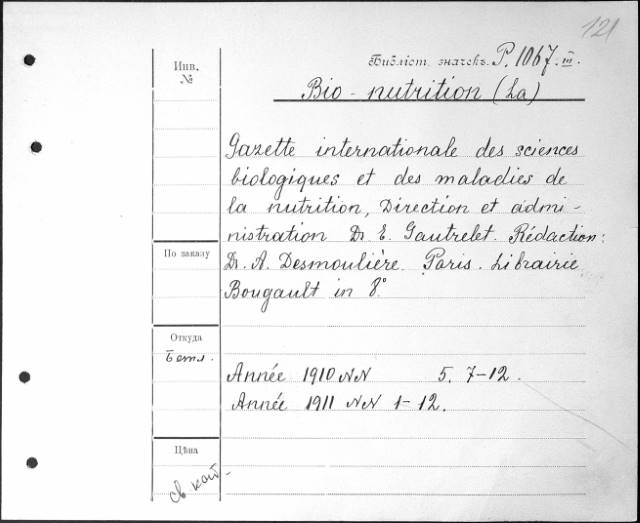 121
Инв. №
Библіот. значекъ P. 1067. III.
Bio-nutrition (La)
Gazette internationale des sciences
biologiques et des maladies de
la nutrition, Direction et admi-
nistration Dr. E. Gautrelet. Rédaction:
По заказу
Dr. A. Desmoulière. Paris. Librairie
Bougault in 8°
Откуда
Année 1910 NN 5. 7-12.
Année 1911 NN 1-12.
Цѣна